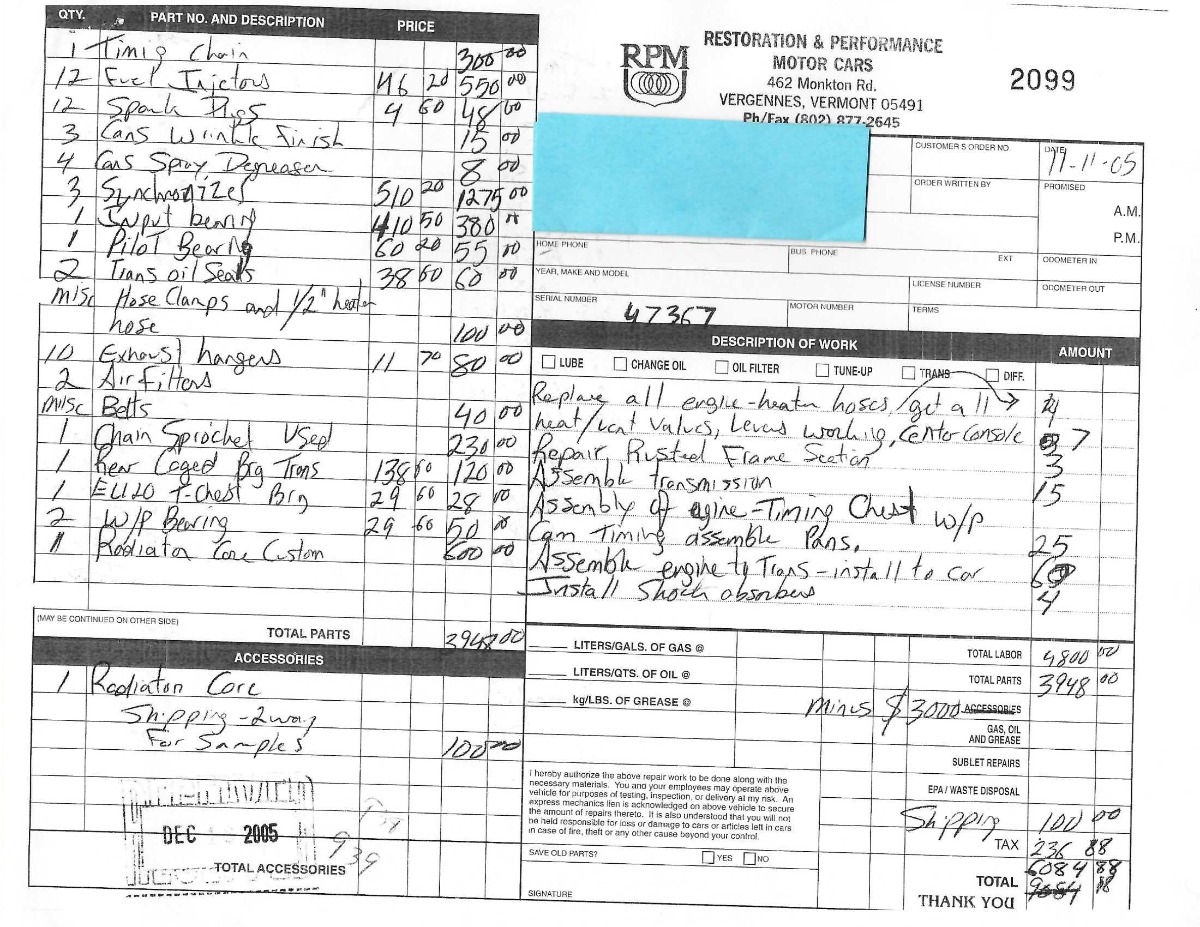 QTY. PART NO. AND DESCRIPTION PRICE
1 Timig Chain 300 00
12 Fuel Injectors 46 20 550 00
12 Spark Plgs 4 60 48 00
3 Cans Wrinkle Finish 15 00
4 Cans Spray Degreaser 8 00
3 Synchronizer 510 20 1275 00
1 Input bearing 410 50 380
1 Pilot Bearing 60 20 55 00
2 Trans oil Seals 38 60 60 00
misc Hose Clamps and 1/2" heater
hose 100 00
10 Exhaust hangers 11 70 80 00
2 Air Filters
misc Belts 40 00
1 Chain Sprocket Used 230 00
1 Rear Caged Brg Trans 138 60 120 00
1 T-Chest Brg 29 60 28 00
2 W/P Bearing 29 60 50
1 Radiator Core Custom 600 00
(MAY BE CONTINUED ON OTHER SIDE)
TOTAL PARTS 3948 00
ACCESSORIES
1 Radiator Core
Shipping - 2 way
For Samples 100 00
DEC 2005
939
TOTAL ACCESSORIES
RPM
RESTORATION & PERFORMANCE
MOTOR CARS
462 Monkton Rd.
VERGENNES, VERMONT 05491
Ph/Fax (802) 877-2645
2099
CUSTOMER'S ORDER NO.
DATE 11-11-05
ORDER WRITTEN BY
PROMISED
A.M.
P.M.
HOME PHONE
BUS. PHONE
EXT
ODOMETER IN
YEAR, MAKE AND MODEL
LICENSE NUMBER
ODOMETER OUT
SERIAL NUMBER 47367
MOTOR NUMBER
TERMS
DESCRIPTION OF WORK AMOUNT
LUBE CHANGE OIL OIL FILTER TUNE-UP TRANS DIFF.
Replace all engine-heater hoses, get all 4
heat/vent valves, levers working, Center Console 7
Repair Rusted Frame Section 3
Assemble Transmission 15
Assembly of egine - Timing Chest W/P
Cam Timing assemble Pans. 25
Assemble engine to Trans - install to car 60
Install Shock absorbers 4
LITERS/GALS. OF GAS @
LITERS/QTS. OF OIL @
kg/LBS. OF GREASE @
TOTAL LABOR 4800 00
TOTAL PARTS 3948 00
minus $3000 ACCESSORIES
GAS, OIL
AND GREASE
SUBLET REPAIRS
EPA / WASTE DISPOSAL
Shipping 100 00
TAX 236 88
6084 88
TOTAL
THANK YOU
I hereby authorize the above repair work to be done along with the
necessary materials. You and your employees may operate above
vehicle for purposes of testing, inspection, or delivery at my risk. An
express mechanics lien is acknowledged on above vehicle to secure
the amount of repairs thereto. It is also understood that you will not
be held responsible for loss or damage to cars or articles left in cars
in case of fire, theft or any other cause beyond your control.
SAVE OLD PARTS? YES NO
SIGNATURE